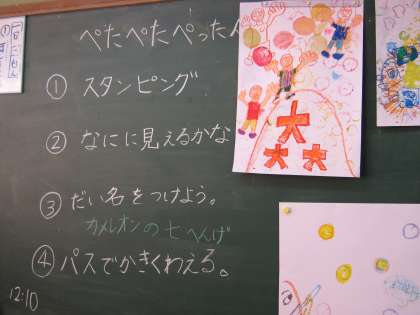 ぺたぺたぺったん
① スタンピング
② なにに見えるかな
③ だい名をつけよう。
カメレオンの七へんげ
④ パスでかきくわえる。
12:10
大
大 大